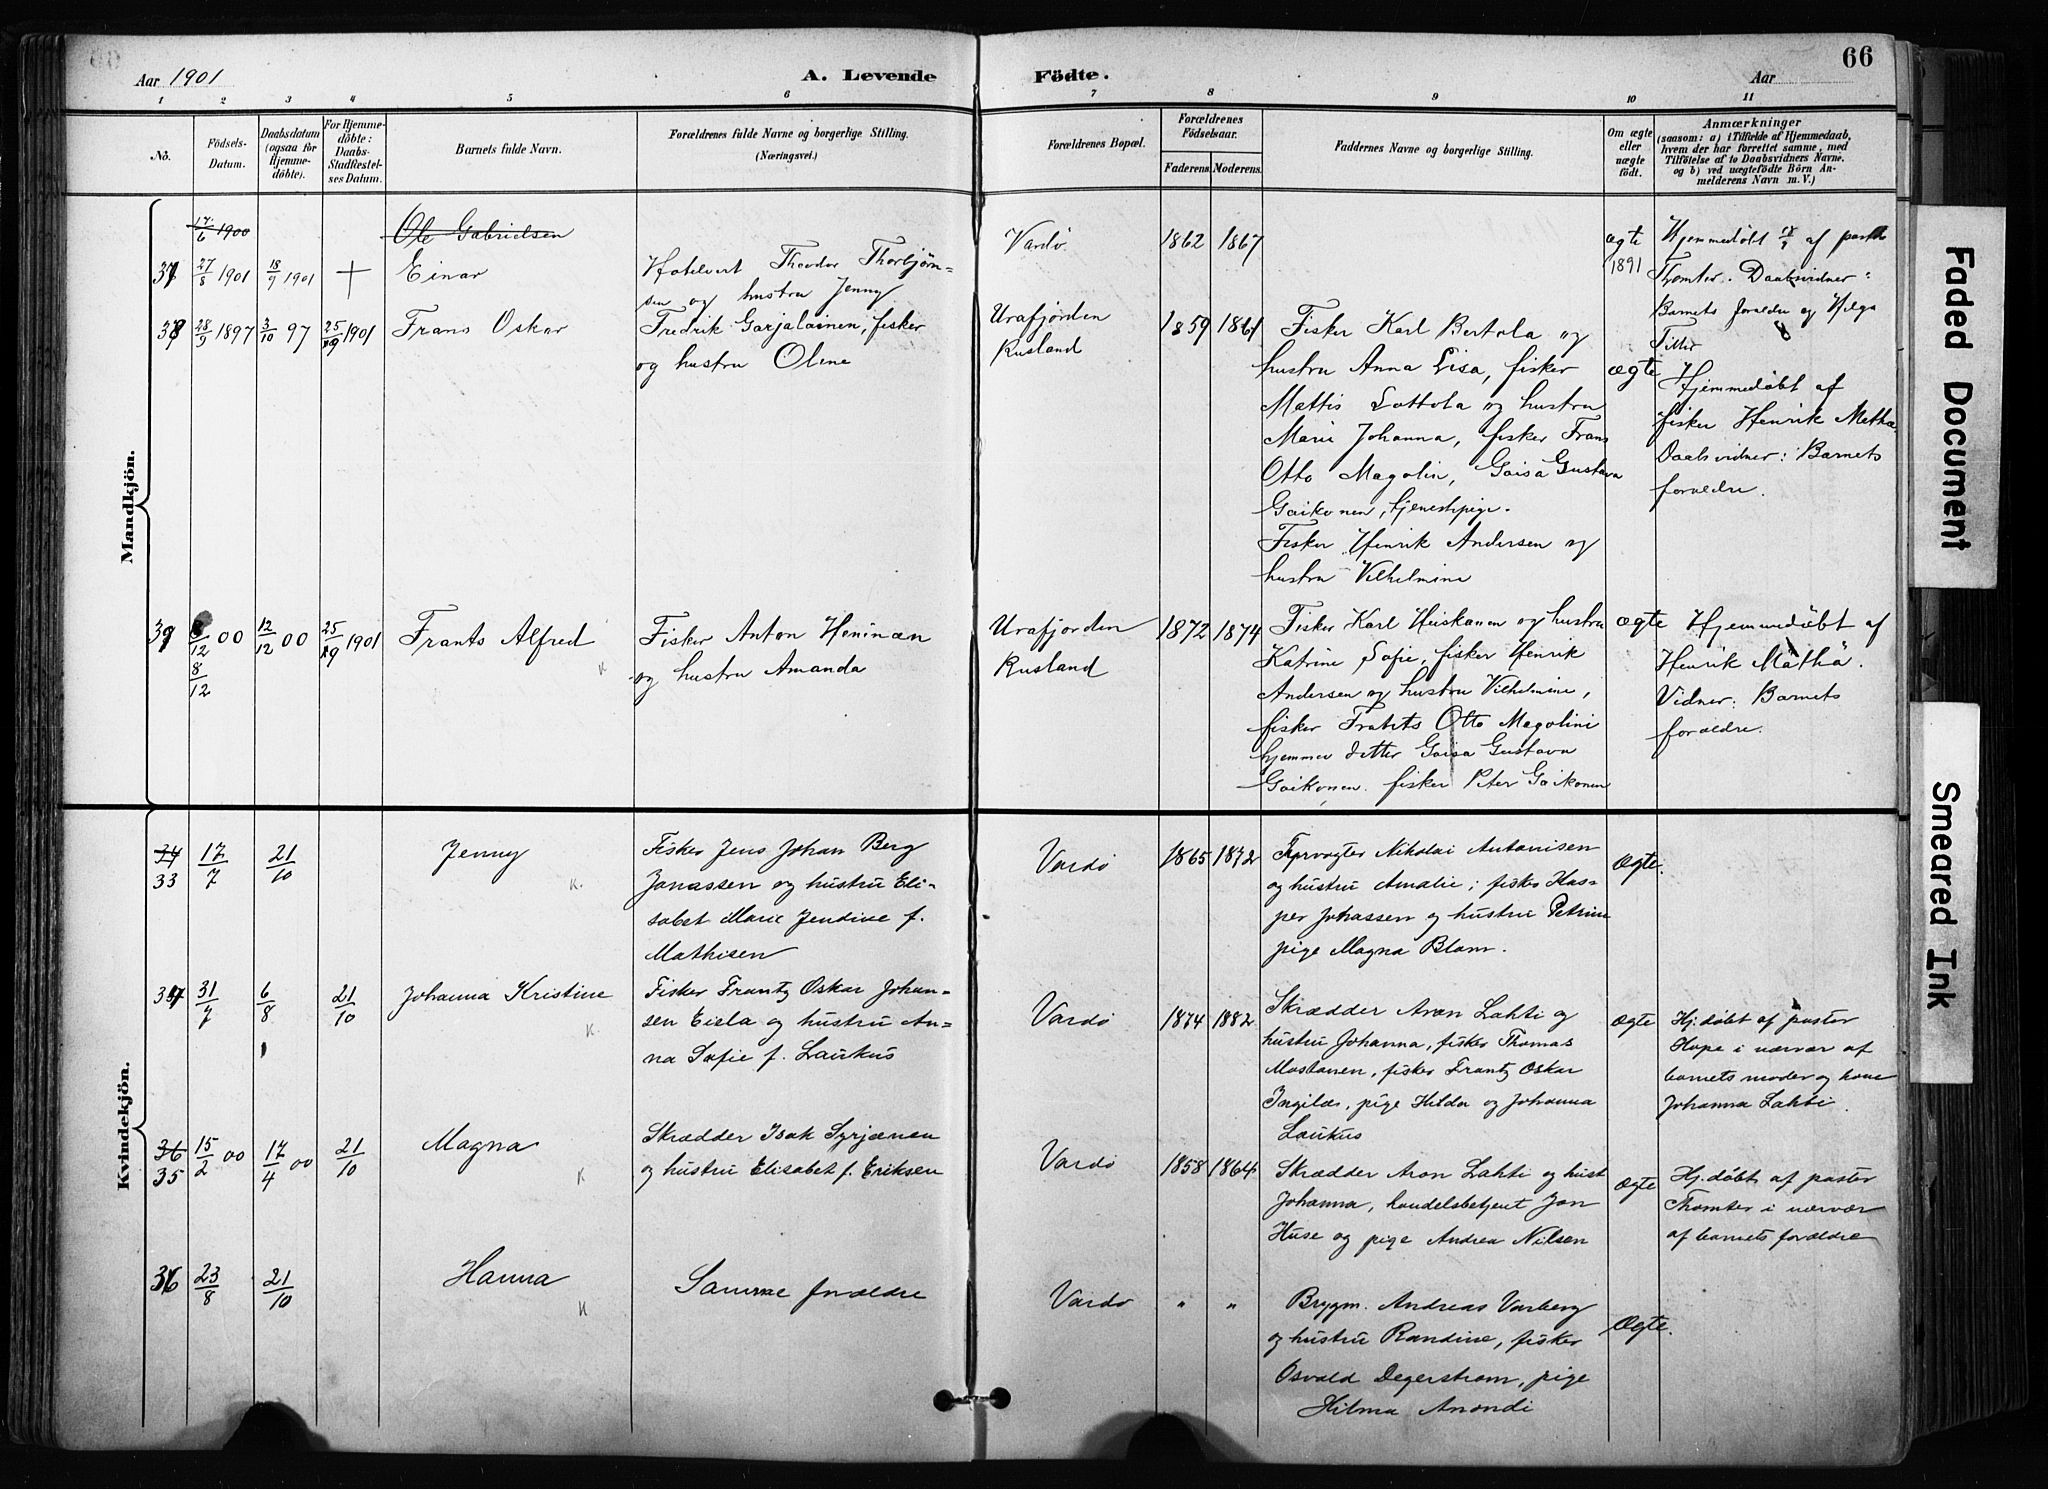 66
Aar 1901
A. Levende
Födte.
Aar
1 2 3 4 5 6 7 8 9 10 11
No.
Födsels-
Datum.
Daabsdatum
(ogsaa for
Hjemme-
döbte).
For Hjemme-
döbte:
Daabs-
Stadfæstel-
ses Datum.
Barnets fulde Navn.
Forældrenes fulde Navne og borgerlige Stilling.
(Næringsvei.)
Forældrenes Bopæl.
Forældrenes
Födselsaar.
Faderens
Moderens
Faddernes Navne og borgerlige Stilling.
Om ægte
eller
uægte
födt.
Anmærkninger
(saasom: a) i Tilfælde af Hjemmedaab,
hvem der har forrettet samme, med
Tilföielse af to Daabsvidners Navne.
og b) ved uægtefödte Börn An-
melderens Navn m. V.)
Mandkjön.
17/6 1900
Ole Gabrielsen
37
27/8 1901
18/9 1901
+
Einar
Hotelvert Theodor Thorbjørn-
sen og hustru Jenny
Vardø
1862
1867
ægte
1891
Hjemmedøbt 18/9 af past
Thomter. Daabsvidner:
Barnets forældre og Helga
38
28/9 1897
3/10 97
25/9 1901
Frans Oskar
Fredrik Garjalainen, fisker
og hustru Oline
Urafjorden
Rusland
1859
1861
Fisker Karl Bertola og
hustru Anna Lisa, fisker
Mattis Lottola og hustru
Marie Johanna, fisker Frans
Otto Magolin, Gaisa Gustava
Gaikonen, tjenestepige.
Fisker Henrik Andersen og
hustru Vilhelmine
ægte
Hjemmedøbt af
fisker Henrik Metha.
Daabsvidner: Barnets
forældre.
39
8/12 00
8/12
12/12 00
25/9 1901
Frants Alfred
K
Fisker Anton Heninæn
og hustru Amanda
Urafjorden
Rusland
1872
1874
Fisker Karl Heiskanen og hustru
Katrine Sofie, fisker Henrik
Andersen og hustru Vilhelmine,
fisker Frants Otto Magolini
hjemmev. datter Gaisa Gustava
Gaikonen. fisker Peter Gaikonen
ægte
Hjemmedøbt af
Henrik Mäthä.
Vidner: Barnets
forældre.
Kvindekjön.
34
33
17/7
21/10
Jenny
K.
Fisker Jens Johan Berg
Jonassen og hustru Eli-
sabet Marie Jendine f.
Mathisen
Vardø
1865
1872
Fyrvogter Nikolai Antonisen
og hustru Amalie; fisker Kas-
per Johassen og hustru Petrine
pige Magna Blom.
Ægte.
34
31/7
6/8
21/10
Johanna Kristine
K
Fisker Frantz Oskar Johan-
sen Eiela og hustru An-
na Sofie f. Laukus
Vardø
1874
1882
Skrædder Aron Lahti og
hustru Johanna, fisker Thomas
Mostanen, fisker Frantz Oskar
Ingilæ, pige Hilda og Johanna
Laukus
Ægte
Hj.døbt af pastor
Hope i nærvær af
barnets moder og kone
Johanna Lahti.
36
35
15/2 00
17/4 00
21/10
Magna
K
Skrædder Isak Syrjænen
og hustru Elisabet f. Eriksen
Vardø
1858
1864
Skrædder Aron Lahti og hust
Johanna, handelsbetjent Jon
Huse og pige Andrea Nilsen
Ægte
Hj.døbt af pastor
Thomter i nærvær
af barnets forældre
36
23/8
21/10
Hanna
K
Samme forældre
Vardø
" "
Bryggm. Andreas Varberg
og hustru Randine, fisker
Osvald Degerstrøm, pige
Hilma Anondi
Ægte.
Faded Document
Smeared Ink